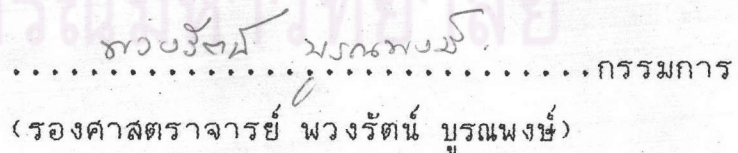 พวงรัตน์ บูรณพงษ์
..............................กรรมการ
(รองศาสตราจารย์ พวงรัตน์ บูรณพงษ์)